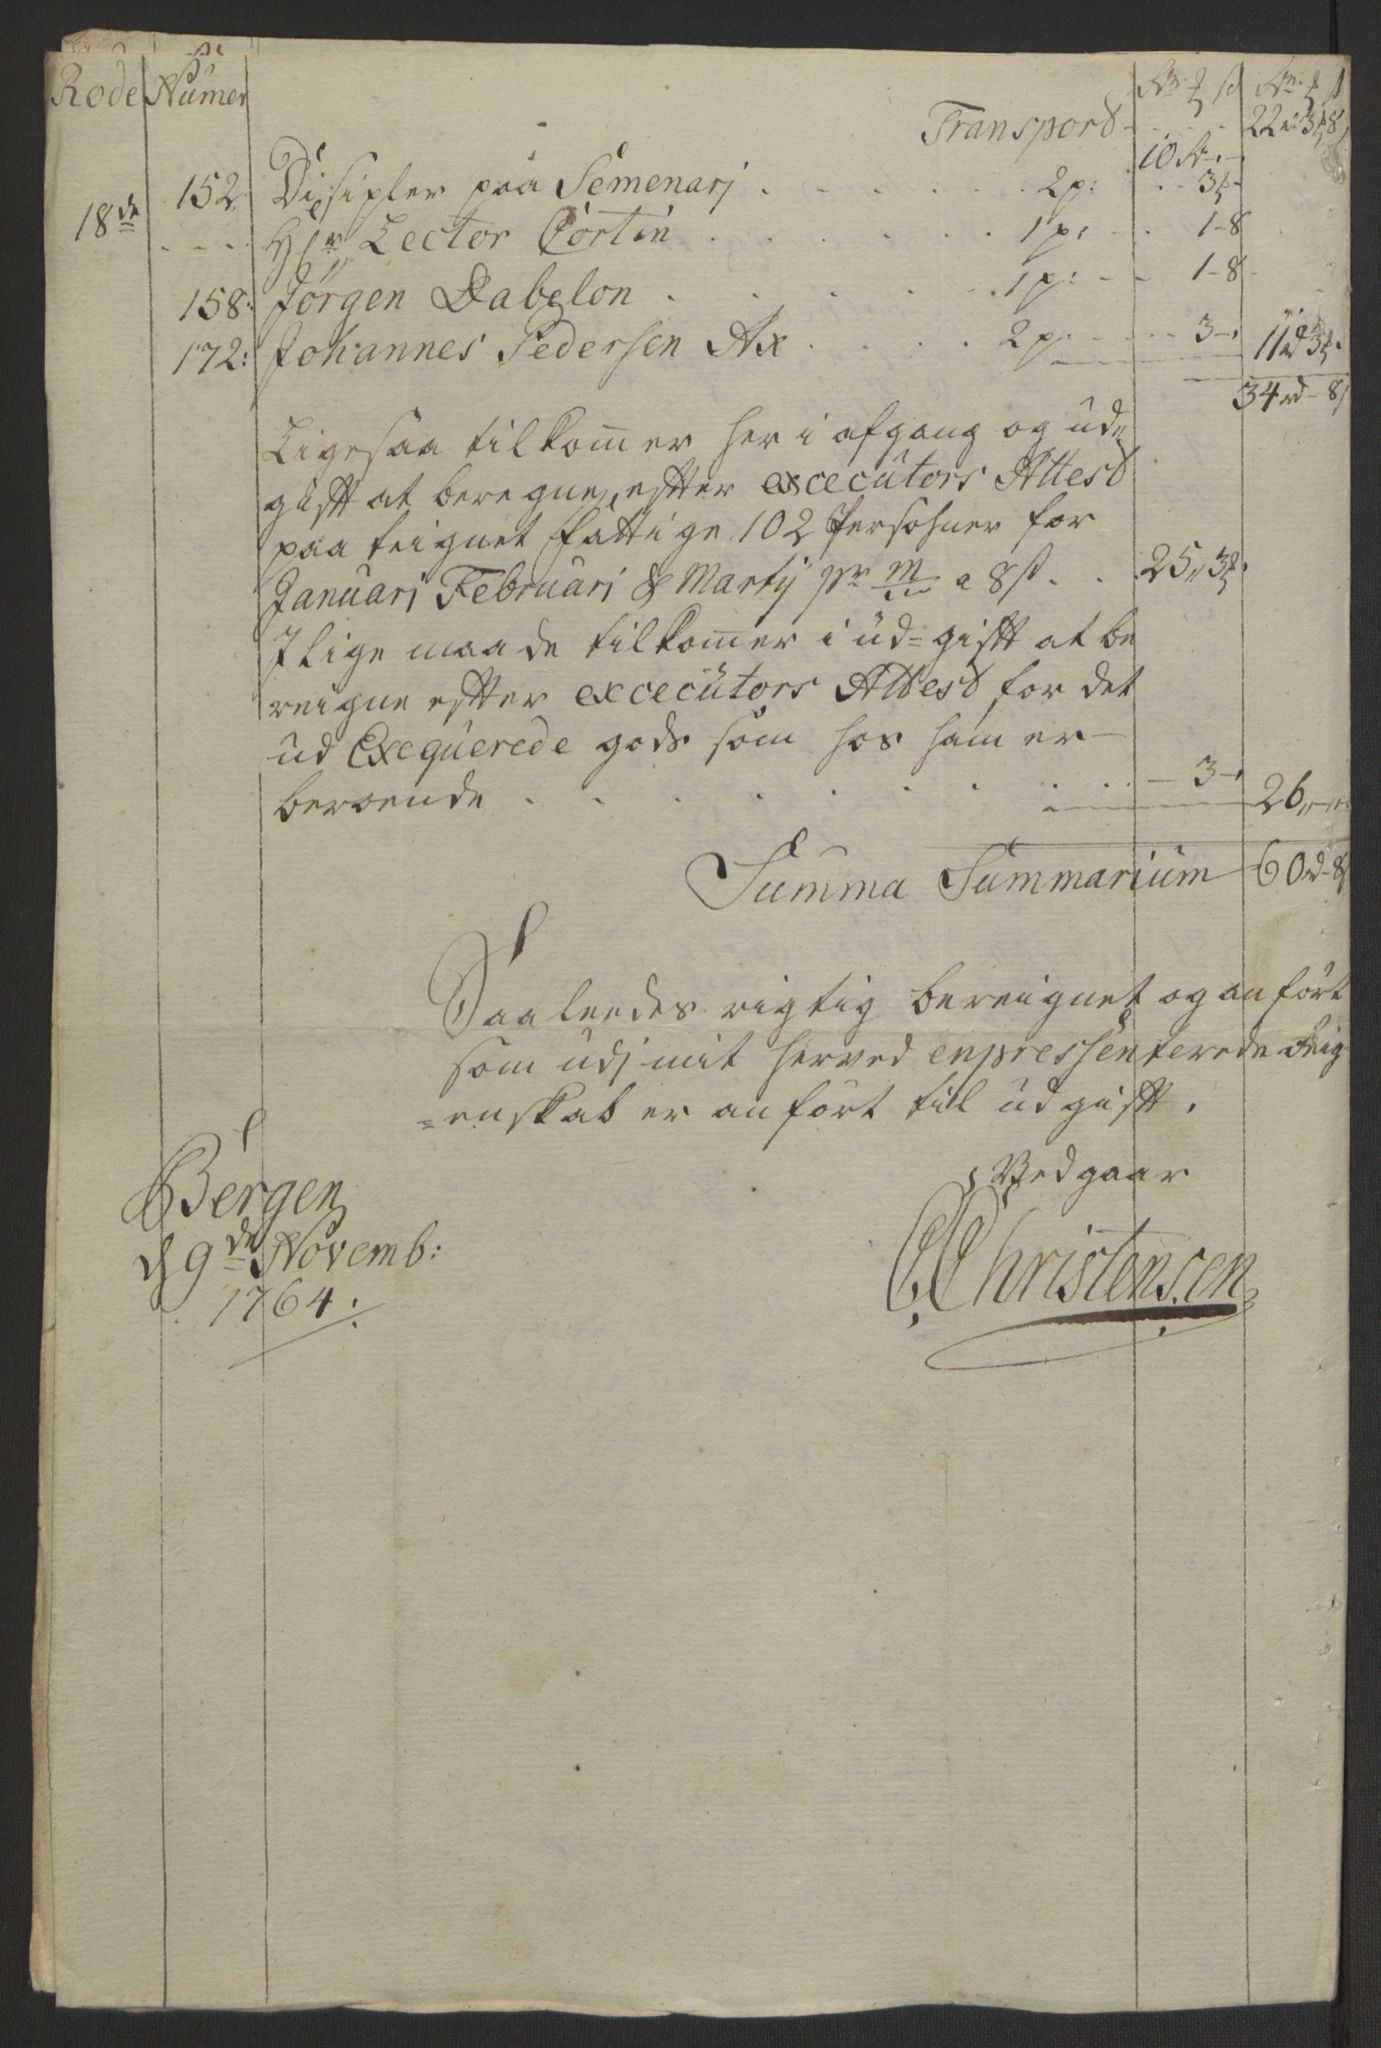 Rode Numer Rd ß Rd ß
Transport 22 3 8
10
18de 152 Disipler paa Semenarj 2p: 3
Hr Lector Cortin 1p: 1-8
158: Jørgen Dabelon 1p: 1-8
172: Johannes Pedersen Ax 2p: 3- 11rd 3
34rd-8ß
Ligesaa tilkommer her i afgang og ud-
gift at beregnes, efter excecutors Attest
paa teignet fattige 102 Persohner for
Januarj Februarj & Martij pr m a 8ß 25,, 3
J lige maade tilkommer i ud=gift at be
reigne efter excecutors Attest for det
ud Exequerede gods som hos ham er
beroende 3- 26,,
Summa Summarium 60rd-8ß
Saaleedes rigtig bereignet og anført
som udj mit herved enpressenterede Reig
=enskab er anført till udgift.
Bergen
d 9de Novemb:
1764.
Vedgaar
C Christensen